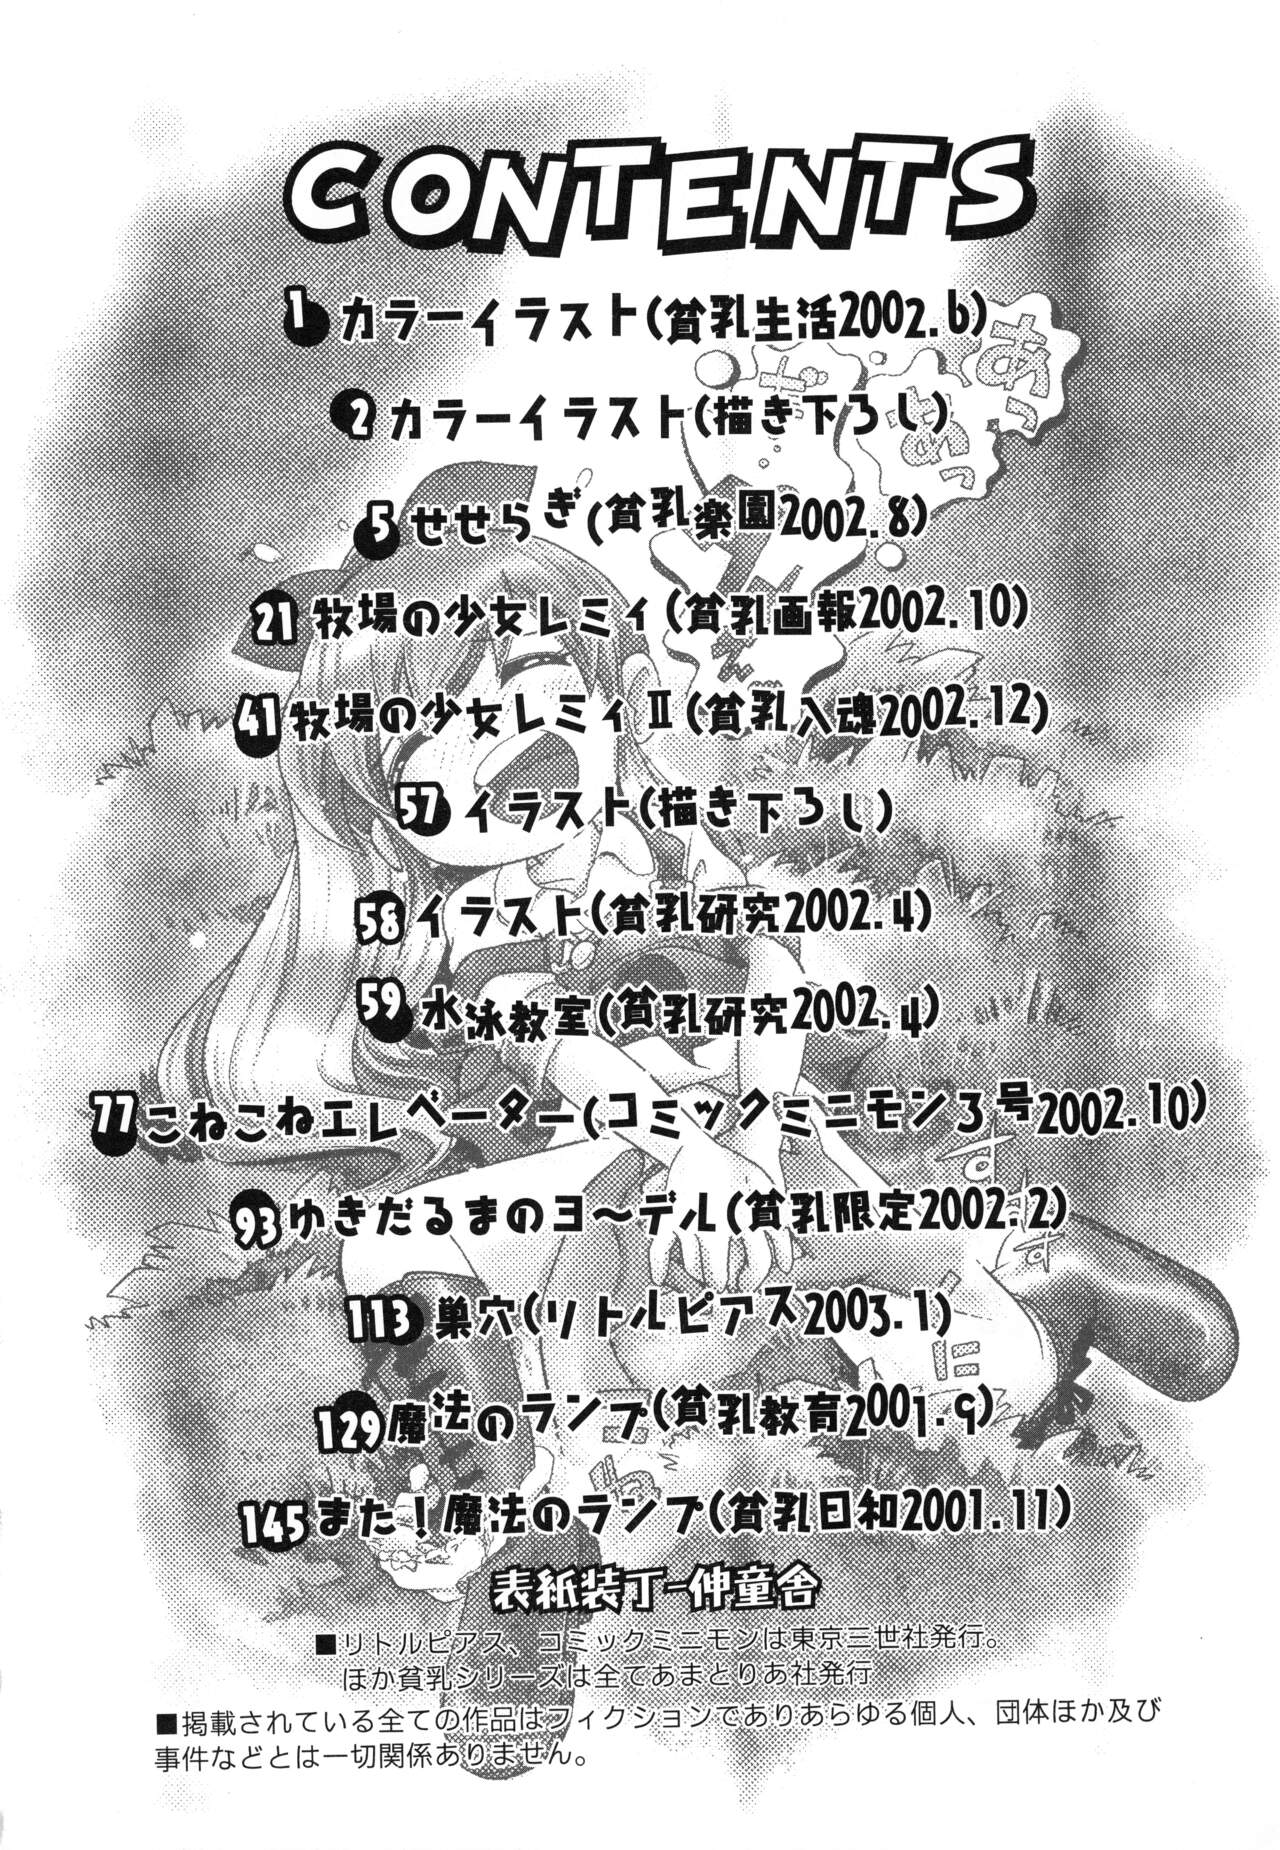 CONTENTS
1 カラーイラスト(貧乳生活2002.6)
2 カラーイラスト(描き下ろし)
5 せせらぎ(貧乳楽園2002.8)
21 牧場の少女レミィ(貧乳画報2002.10)
41 牧場の少女レミィⅡ(貧乳入魂2002.12)
57 イラスト(描き下ろし)
58 イラスト(貧乳研究2002.4)
59 水泳教室(貧乳研究2002.4)
77 こねこねエレベーター(コミックミニモン3号2002.10)
93 ゆきだるまのヨ～デル(貧乳限定2002.2)
113 巣穴(リトルピアス2003.1)
129 魔法のランプ(貧乳教育2001.9)
145 また!魔法のランプ(貧乳日和2001.11)
表紙装丁-伸童舎
■リトルピアス、コミックミニモンは東京三世社発行。
ほか貧乳シリーズは全てあまとりあ社発行
■掲載されている全ての作品はフィクションでありあらゆる個人、団体ほか及び
事件などとは一切関係ありません。